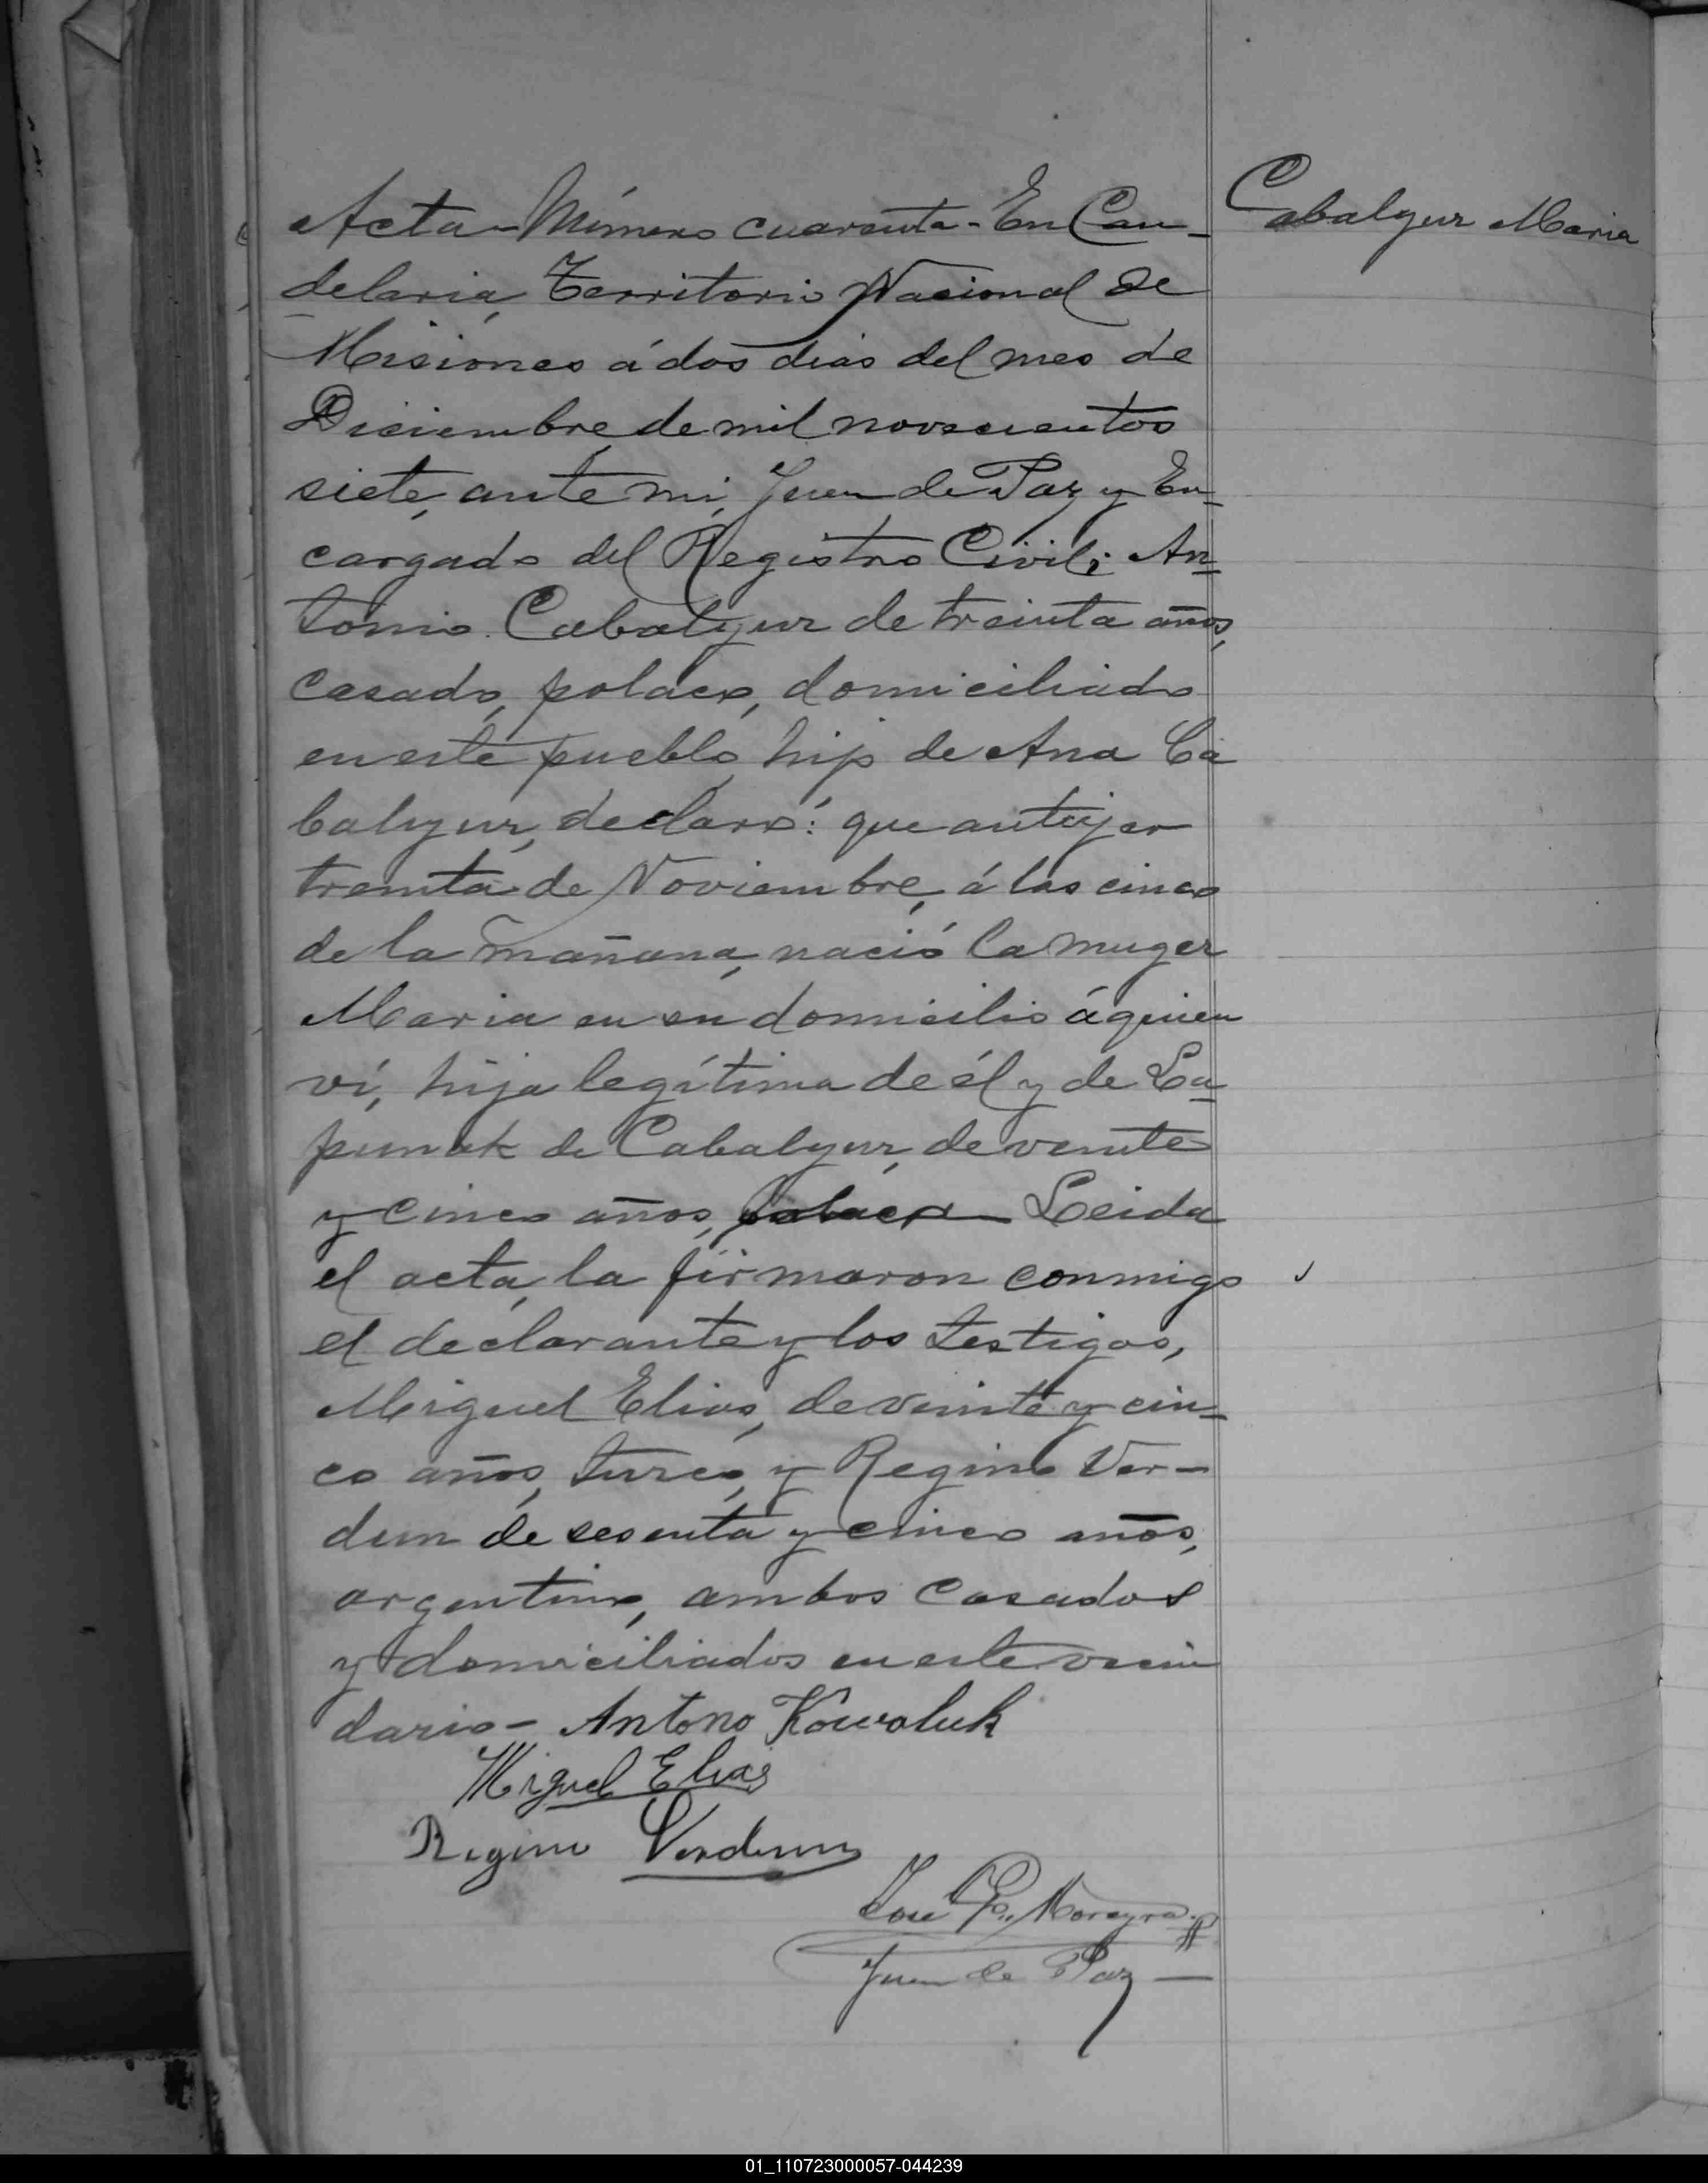 Acta - Número cuarenta - En Can-
delaria, Territorio Nacional de
Misiones á dos dias del mes de
Diciembre de mil novecientos
siete, ante mi, Juez de Paz y En-
cargado del Registro Civil; An-
tonio Cabalyur de treinta años,
casado, polaco, domiciliado
en este pueblo, hijo de Ana Ca
balyur, declaró: que antiyer
treinta de Noviembre, á las cinco
de la mañana, nació la muger
Maria en su domicilio á quien
ví, hija legítima de él y de La-
punak de Cabalyur, de veinte
y cinco años, polaca - Leida
el acta, la firmaron conmigo
el declarante y los testigos,
Miguel Elias, de veinte y cin-
co años, turco, y Regino Ver-
dun de sesenta y cinco años,
argentino, ambos casados
y domiciliados en este vecin
dario - Antono Kowaluk
Miguel Elias
Regino Verdun
José P. Moreyra
Juez de Paz
Cabalyur Maria
01_110723000057-044239